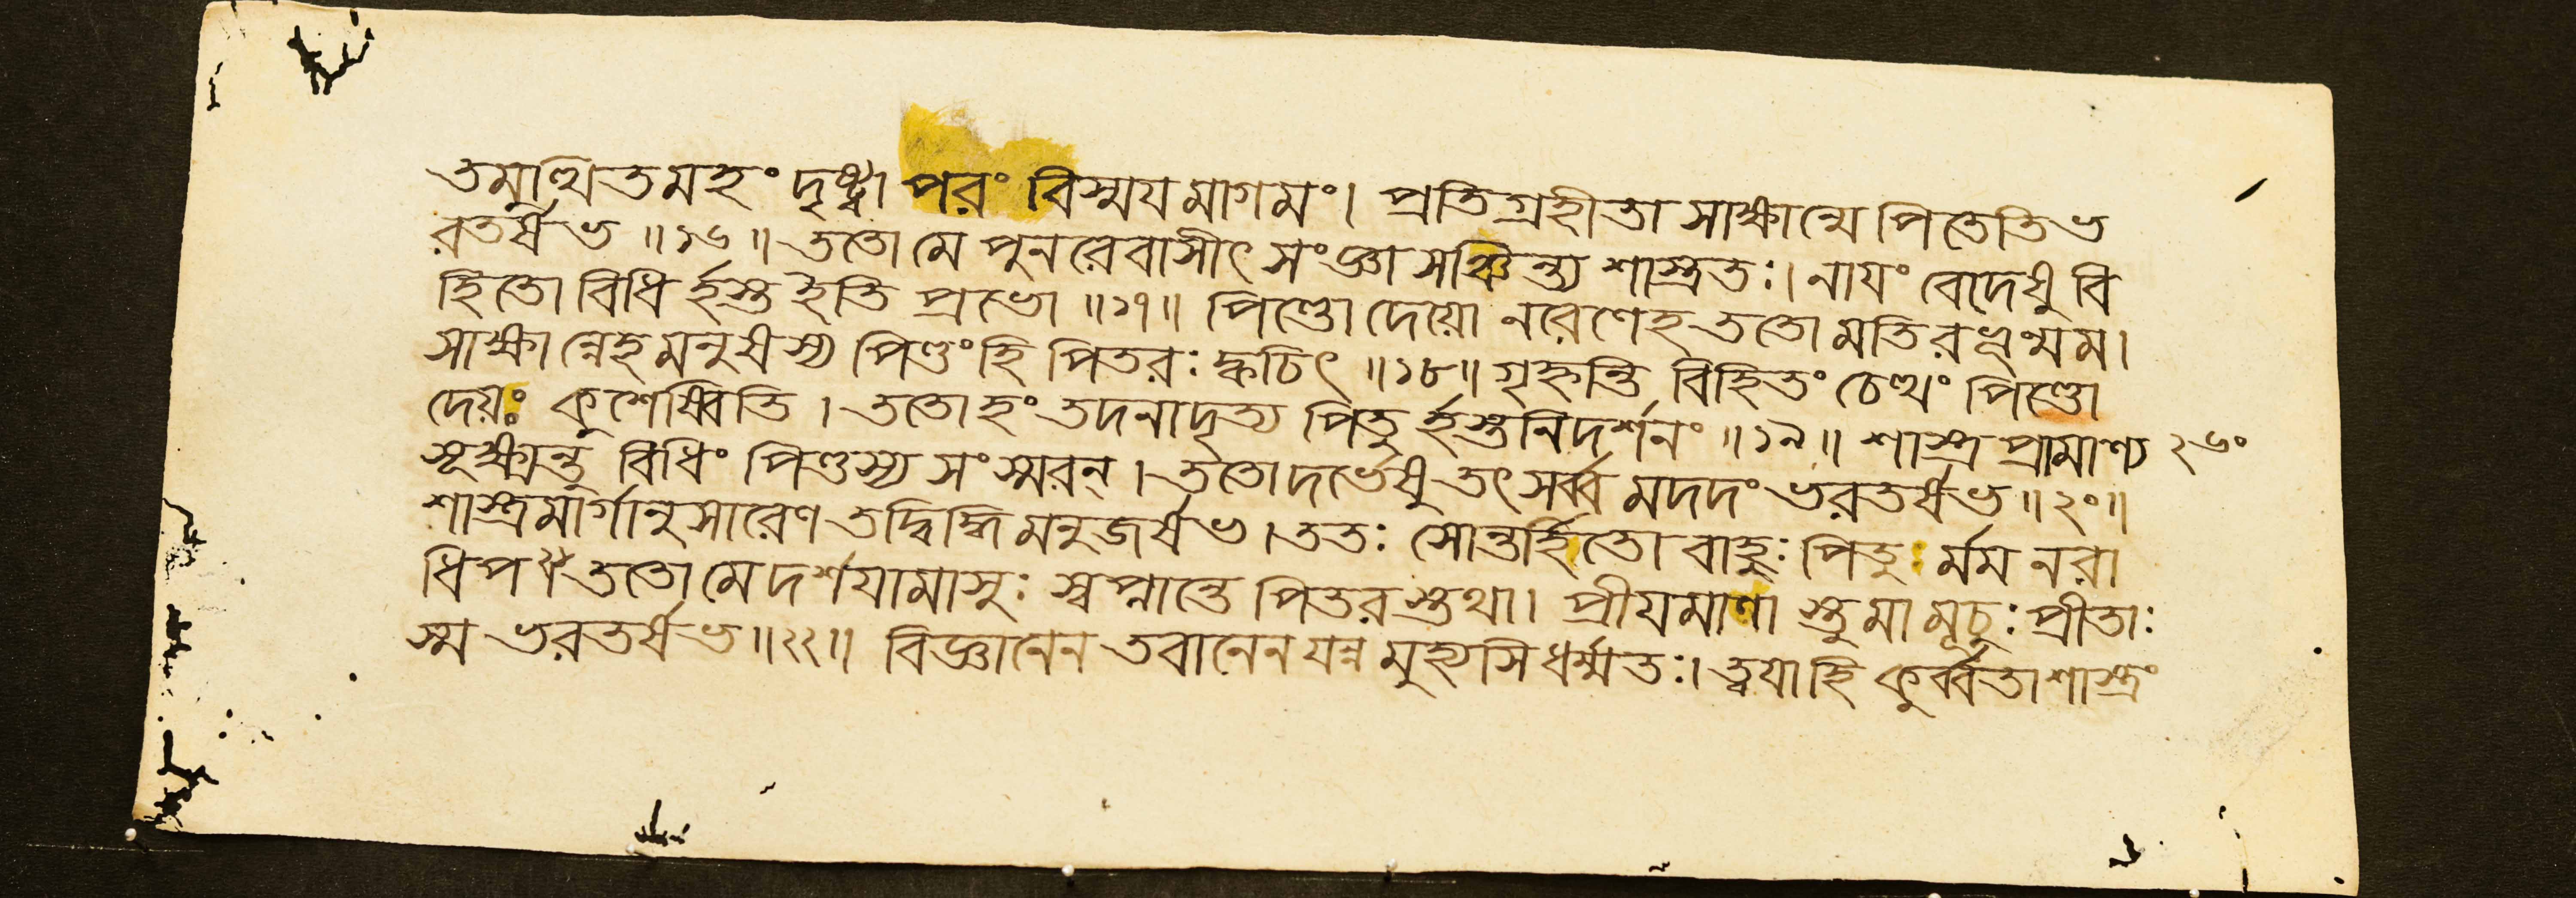 তমুত্থিতমহং দৃষ্ট্বা পরং বিস্ময়মাগমং। প্রতিগ্রহীতা সাক্ষান্মে পিতেতি ভ
রতর্ষভ ॥১৬॥ ততো মে পুনরেবাসীৎ সংজ্ঞা সঞ্চিন্ত্য শাস্ত্রতঃ। নায়ং বেদেষু বি
হিতো বিধির্হস্ত ইতি প্রভো ॥১৭॥ পিণ্ডো দেয়ো নরেণেহ ততো মতিরভূন্মম।
সাক্ষান্নেহ মনুষ্যস্য পিণ্ডং হি পিতরঃ ক্বচিৎ ॥১৮॥ গৃহ্নন্তি বিহিতং চেত্থং পিণ্ডো
দেয়ঃ কুশেষ্বিতি। ততোহং তদনাদৃত্য পিতুর্হস্তনিদর্শনং ॥১৯॥ শাস্ত্র প্রামাণ্য ২৬০
সূক্ষ্মন্তু বিধিং পিণ্ডস্য সংস্মরন্। ততো দর্ভেষু তৎ সর্ব্ব মদদং ভরতর্ষভ ॥২০॥
শাস্ত্রমার্গানুসারেণ তদ্বিদ্ধি মনুজর্ষভ। ততঃ সোন্তর্হিতো বাহুঃ পিতুঃ র্মম নরা
ধিপ ততো মে দর্শয়ামাসুঃ স্বপ্নান্তে পিতরস্তথা। প্রীয়মাণা স্তু মামূচুঃ প্রীতাঃ
স্ম ভরতর্ষভ ॥২২॥ বিজ্ঞানেন তবানেন যন্ন মুহ্যসি ধর্ম্মতঃ। ত্বয়া হি কুর্ব্বতা শাস্ত্রং